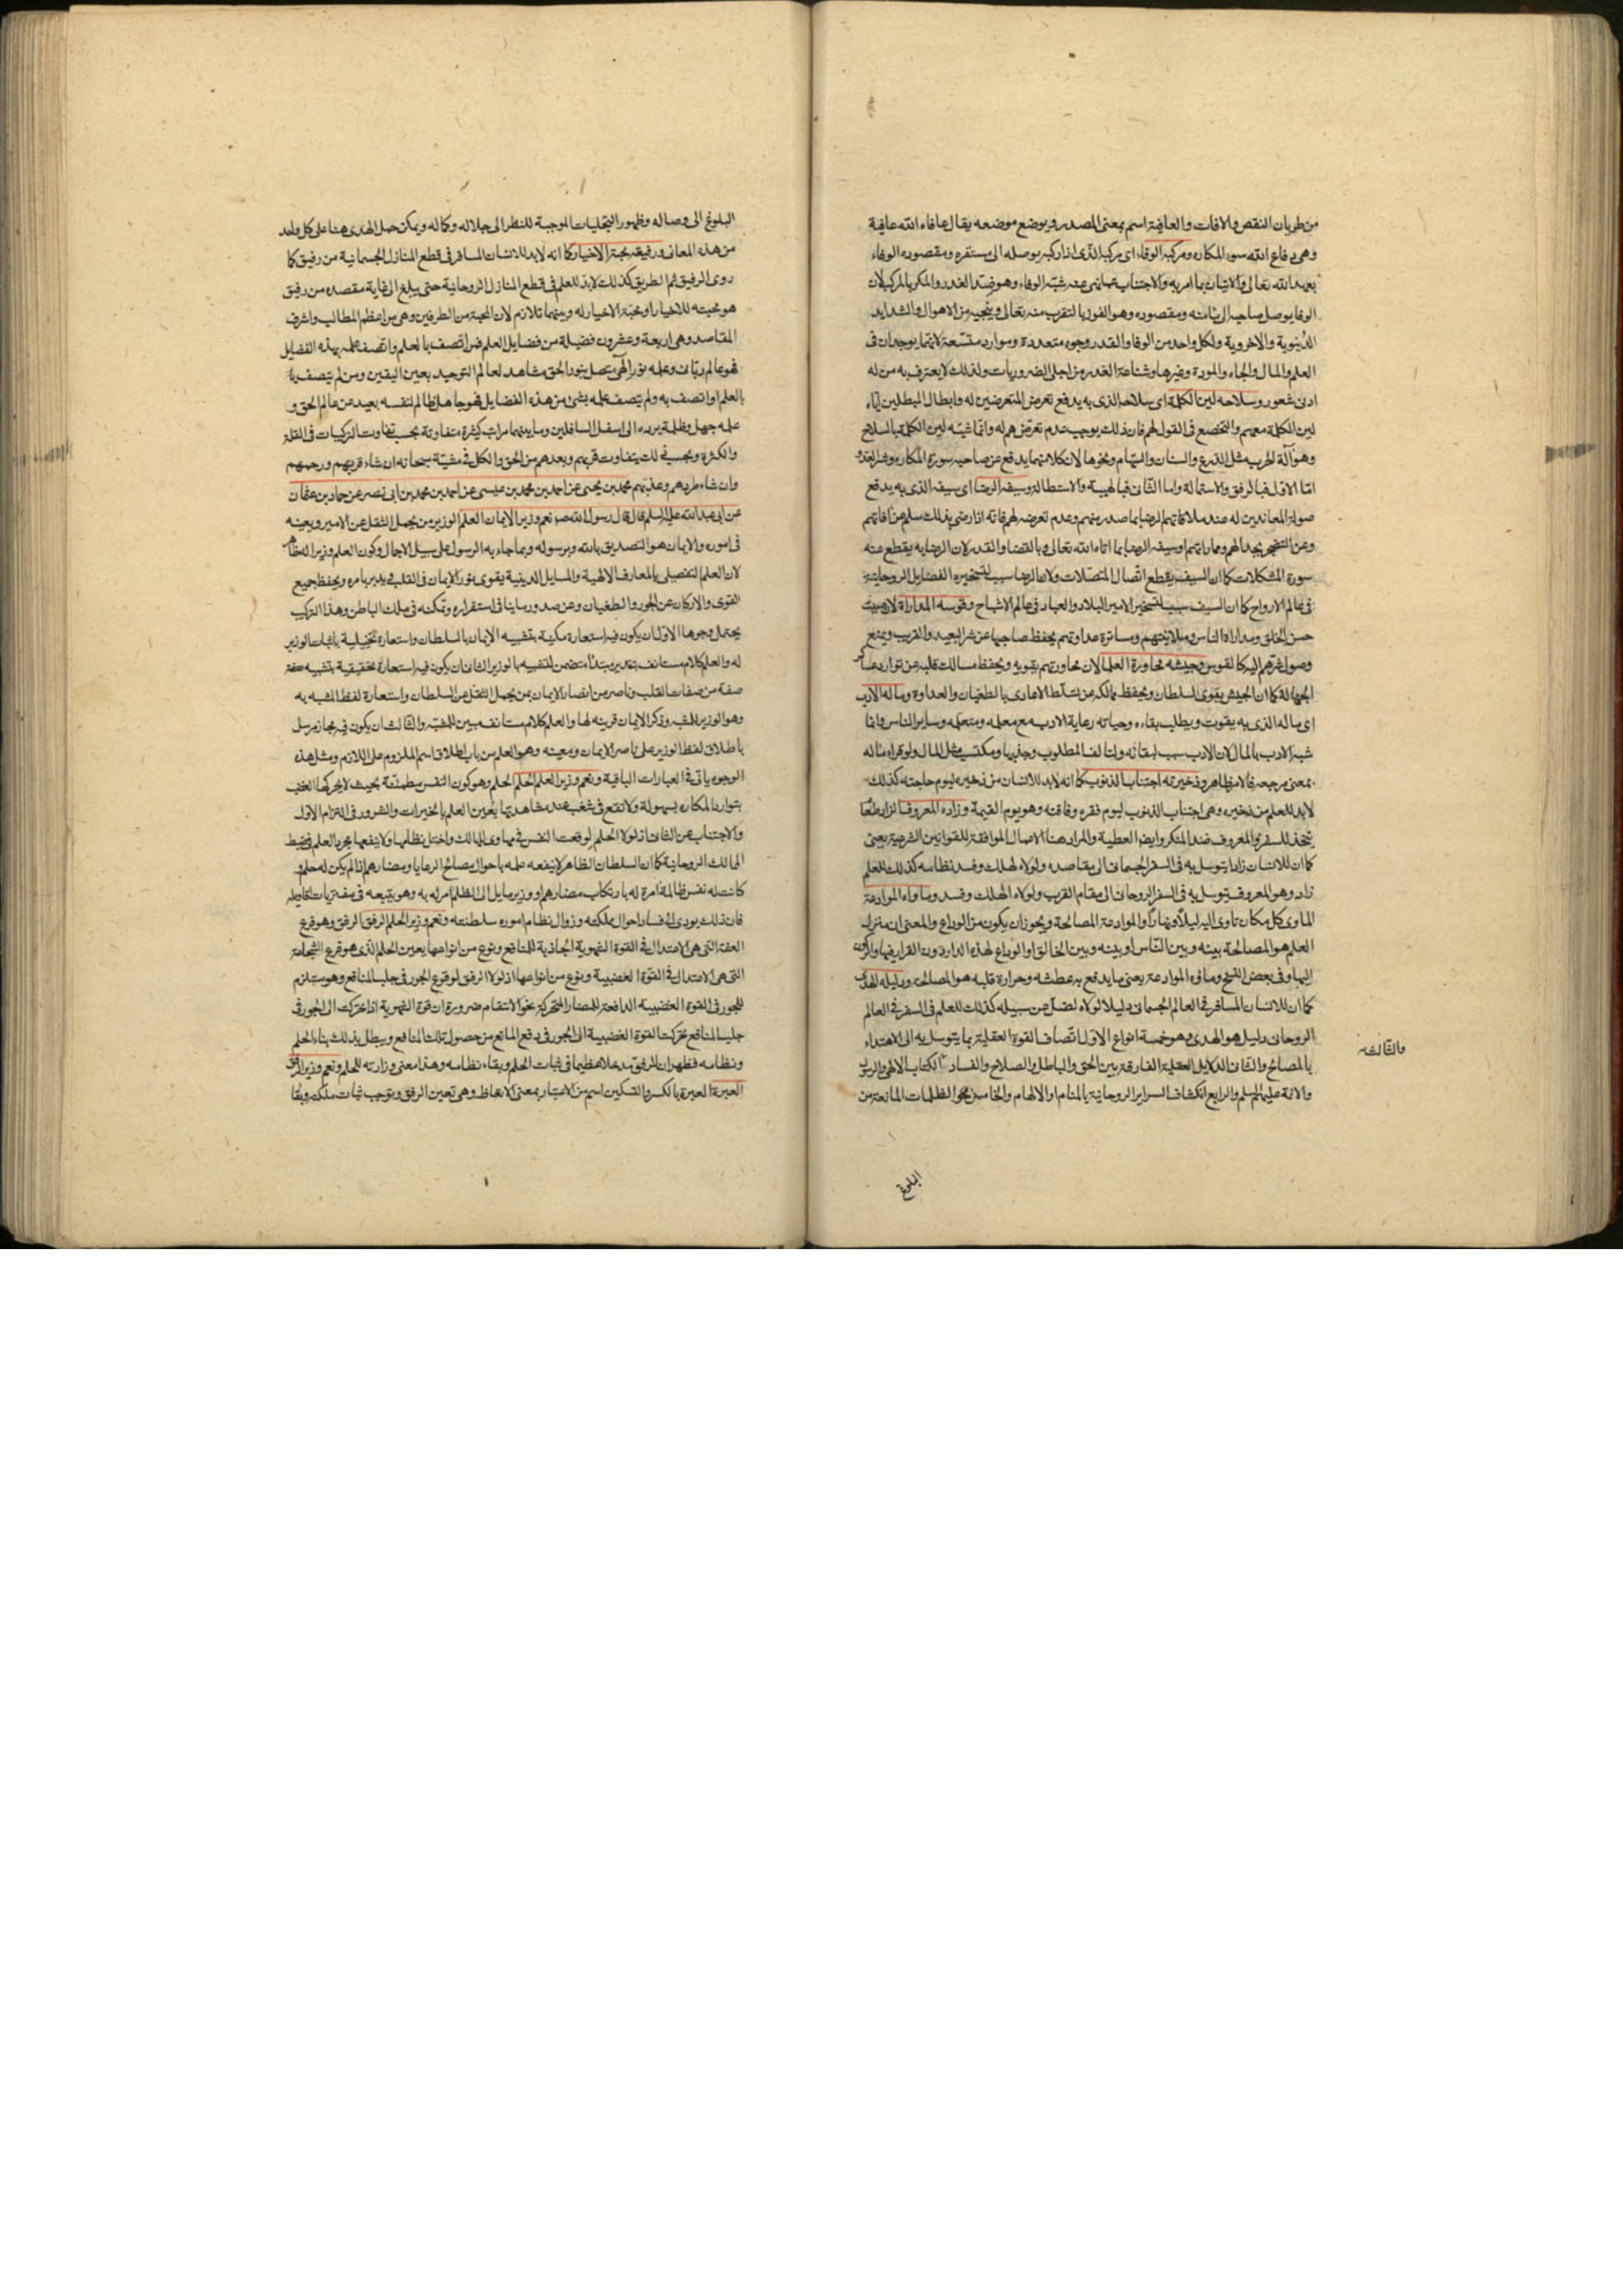 من طريان النقص والافات والعافية اسم بمعنى المصدر ويوضع موضعه يقال عافاه الله عافية
وهى دفاع الله سوء المكاره ومركبه الوفاء اى مركبه الذى اذا ركبه يوصله الى مستقره ومقصوده الوفاء
بعهد الله تعالى والاتيان بما امر به والاجتناب عما نهى عنه شبّه الوفاء وهو ضد الغدر والمكر بالمركب لان
الوفا يوصل صاحبه الى مأمنه ومقصوده وهو الفوز بالتقرب منه تعالى وينجيه من الاهوال والشدايد
الدنيوية والاخروية ولكل واحد من الوفا والغدر وجوه متعددة وموارد متسعة لانهما يوجدان فى
العلم والمال والجاه والمودة وغيرها وشناعة الغدر من اجلى الضروريات ولذلك لا يعترف به من له
ادنى شعور وسلاحه لين الكلمة اى سلاحه الذى به يدفع تعرض المتعرضين له وابطال المبطلين اياه
لين الكلمة معهم والتخضع فى القول لهم فان ذلك يوجب عدم تعرضهم له وانما شبّه لين الكلمة بالسلاح
وهو آلة الحرب مثل الدرع والسنان والسهام ونحوها لان كلا منهما يدفع عن صاحبه سورة المكاره وشر العدو
امّا الاول فبالرفق والاستمالة واما الثانى فبالهيبة والاستطالة وسيفه الرضا اى سيفه الذى به يدفع
صولة المعاندين له عند ملاقاتهم الرضا بما صدر منهم وعدم تعرضه لهم فانه اذا رضى بذلك سلم عن آفاتهم
وعن التضجر بجدالهم ومماراتهم او سيفه الرضا بما اتاه الله تعالى وبالقضا والقدر لان الرضا به يقطع عنه
سورة المشكلات كما ان السيف يقطع اتّصال المتصلات ولان الرضا سبب لتسخيره الفضايل الروحانية
فى عالم الارواح كما ان السيف سبب لتسخير الامير البلاد والعباد فى عالم الاشباح وقوسه المداراة لان
حسن الخلق ومداراة الناس وملاينتهم ومساترة عداوتهم يحفظ صاحبها عن شر البعيد والقريب ويمنع
وصول شرهم اليه كالقوس وجيشه محاورة العلما لان محاورتهم يقويه ويحفظ مسالك قلبه عن توارد عساكر
الجهالة كما ان الجيش يقوى السلطان ويحفظ ممالكه عن تسلّط الاعادى بالطغيان والعداوة وماله الادب
اى ماله الذى به يتقوت ويطلب بقاءه وحياته رعاية الادب مع معلمه ومتعلمه وساير الناس وانما
شبه الادب بالمال لان الادب سبب لبقائه ولتالف المطلوب وجذبها ومكتسب مثل المال ولو قراء مآله
بمعنى مرجعه فالامر ظاهر وذخيرته اجتناب الذنوب كما انه لابد للانسان من ذخيره ليوم حاجته كذلك
لابد للعلم من ذخيره وهى اجتناب الذنوب ليوم فقره وفاقته وهو يوم القيمة وزاده المعروف الزاد طعام
يتخذ للسفر والمعروف ضد المنكر وايضا العطية والمراد هنا الاعمال الموافقة للقوانين الشرعية يعنى
كما ان للانسان زادا يتوسل به فى السفر الجسمانى الى مقاصده ولولاه لهلك وفسد نظامه كذلك للعلم
زاد وهو المعروف يتوسل به فى السفر الروحانى الى مقام القرب ولولاه لهلك وفسد وماواه الموادعة
الماوى كل مكان تاوى اليه ليلا ونهارا والموادعة المصالحة ويجوز ان يكون من الوداع والمعنى ان منزل
العلم هو المصالحة بينه وبين الناس او بينه وبين الخالق او الوداع لهذه الدار دون القرار فيها والركون
اليها وفى بعض النسخ وماؤه الموادعة يعنى ما يدفع به عطشه وحرارة قلبه هو المصالحة ودليله الهدى
كما ان للانسان المسافر فى العالم الجسمانى دليلا لولاه لضل عن سبيله كذلك للعلم فى السفر فى العالم
الروحانى دليل هو الهدى وهو خمسة انواع الاول اتّصاف القوة العقلية بما يتوسل به الى الاهتداء
بالمصالح والثانى الدلايل العقلية الفارقة بين الحق والباطل والصلاح والفساد الكتاب الالهى والرسول
والائمة عليهم السلم والرابع انكشاف السراير الروحانية بالمنام او الالهام والخامس محو الظلمات المانعة من
والثالث
البلوغ
البلوغ الى وصاله وظهور التجليات الموجبة للنظر الى جلاله وكماله ويمكن حمل الهدى هنا على كل واحد
من هذه المعانى ورفيقه محبة الاخيار كما انه لابد للانسان المسافر فى قطع المنازل الجسمانية من رفيق كما
روى الرفيق ثم الطريق كذلك لابد للعلم فى قطع المنازل الروحانية حتى يبلغ الى غاية مقصده من رفيق
هو محبته للاخيار او محبة الاخيار له وبينهما تلازم لان المحبة من الطرفين وهى من اعظم المطالب واشرف
المقاصد وهى اربعة وعشرون فضيلة من فضايل العلم فمن اتصف بالعلم واتصف علمه بهذه الفضايل
فهو عالم ربّانى وعلمه نور الهى متصل بنور الحق مشاهد لعالم التوحيد بعين اليقين ومن لم يتصف
بالعلم او اتصف به ولم يتصف علمه بشئ من هذه الفضايل فهو جاهل ظالم لنفسه بعيد عن عالم الحق و
علمه جهل وظلمة يرده الى اسفل السافلين وما بينهما مراتب كثيرة متفاوتة بحسب تفاوت التركيبات فى القلة
والكثرة وبحسب ذلك يتفاوت قربهم وبعدهم من الحق والكل فى مشيّة سبحانه ان شاء قربهم ورحمهم
وان شاء طردهم وعذبهم محمد بن يحيى عن احمد بن محمد بن عيسى عن احمد بن محمد بن ابى نصر عن حماد بن عثمان
عن ابى عبد الله عليه السلم قال قال رسول الله ص نعم وزير الايمان العلم الوزير من يحمل الثقل عن الامير ويعينه
فى اموره والايمان هو التصديق بالله وبرسوله وبما جاء به الرسول على سبيل الاجمال وكون العلم وزيرا له ظاهر
لان العلم التفصيلى بالمعارف الالهية والمسايل الدينية يقوى نور الايمان فى القلب ويدبر امره ويحفظ جميع
القوى والاركان عن الجور والطغيان وعن صدور ما ينافى استقراره وتمكنه فى ملك الباطن وهذا التركيب
يحتمل وجوها الاول ان يكون فيه استعارة مكنية بتشبيه الايمان بالسلطان واستعارة تخييلية باثبات الوزير
له والعلم كلام مستانف بتقدير مبتدأ متضمن للتشبيه بالوزير الثانى ان يكون فيه استعارة تحقيقية بتشبيه صفة
صفة من صفات القلب وناصر من انصار الايمان بمن يحمل الثقل عن السلطان واستعارة لفظ المشبه به
وهو الوزير للمشبه وذكر الايمان قرينة لها والعلم كلام مستانف يبين المشبّه والثالث ان يكون فيه مجاز مرسل
باطلاق لفظ الوزير على ناصر الايمان ومعينه وهو العلم من باب اطلاق اسم الملزوم على اللازم ومثل هذه
الوجوه ياتى فى العبارات الباقية ونعم وزير العلم الحلم الحلم وهو كون النفس مطمئنّة بحيث لا يحركها الغضب
بتوارد المكاره بسهولة ولا تقع فى شغب عند مشاهدتها يعين العلم بالخيرات والشرور فى التزام الاول
والاجتناب عن الثانى اذ لولا الحلم لوقعت النفس فى مهاوى المهالك واختل نظامها ولا ينفعها مجرد العلم فى ضبط
الممالك الروحانية كما ان السلطان الظاهر لا ينفعه علمه باحوال مصالح الرعايا ومضارهم اذا لم يكن له حلم و
كانت له نفس ظالمة امرة له بارتكاب مضارهم او وزير مايل الى الظلم امر له به وهو يتبعه فى مفتريات اقاويله
فان ذلك يودى الى فساد احوال مملكته وزوال نظام امور سلطنته ونعم وزير الحلم الرفق الرفق وهو فرع
العفة التى هى الاعتدال فى القوة الشهوية الجاذبة للمنافع ونوع من انواعها يعين الحلم الذى هو فرع الشجاعة
التى هى الاعتدال فى القوة الغضبية ونوع من انواعها اذ لولا الرفق لوقع الجور فى جلب المنافع وهو مستلزم
للجور فى القوة الغضبية الدافعة للمضار المتحركة نحو الانتقام ضرورة ان قوة الشهوية اذا تحركت الى الجور فى
جلب المنافع تحركت القوة الغضبية الى الجور فى دفع المانع من حصول تلك المنافع ويبطل بذلك بناء الحلم
ونظامه فظهر ان للرفق مدخلا عظيما فى ثبات الحلم وبقاء نظامه وهذا معنى وزارته للحلم ونعم وزير الرفق
العبرة العبرة بالكسر والتسكين اسم من الاعتبار بمعنى الاتعاظ وهى تعين الرفق وتوجب ثبات ملكته وبقا